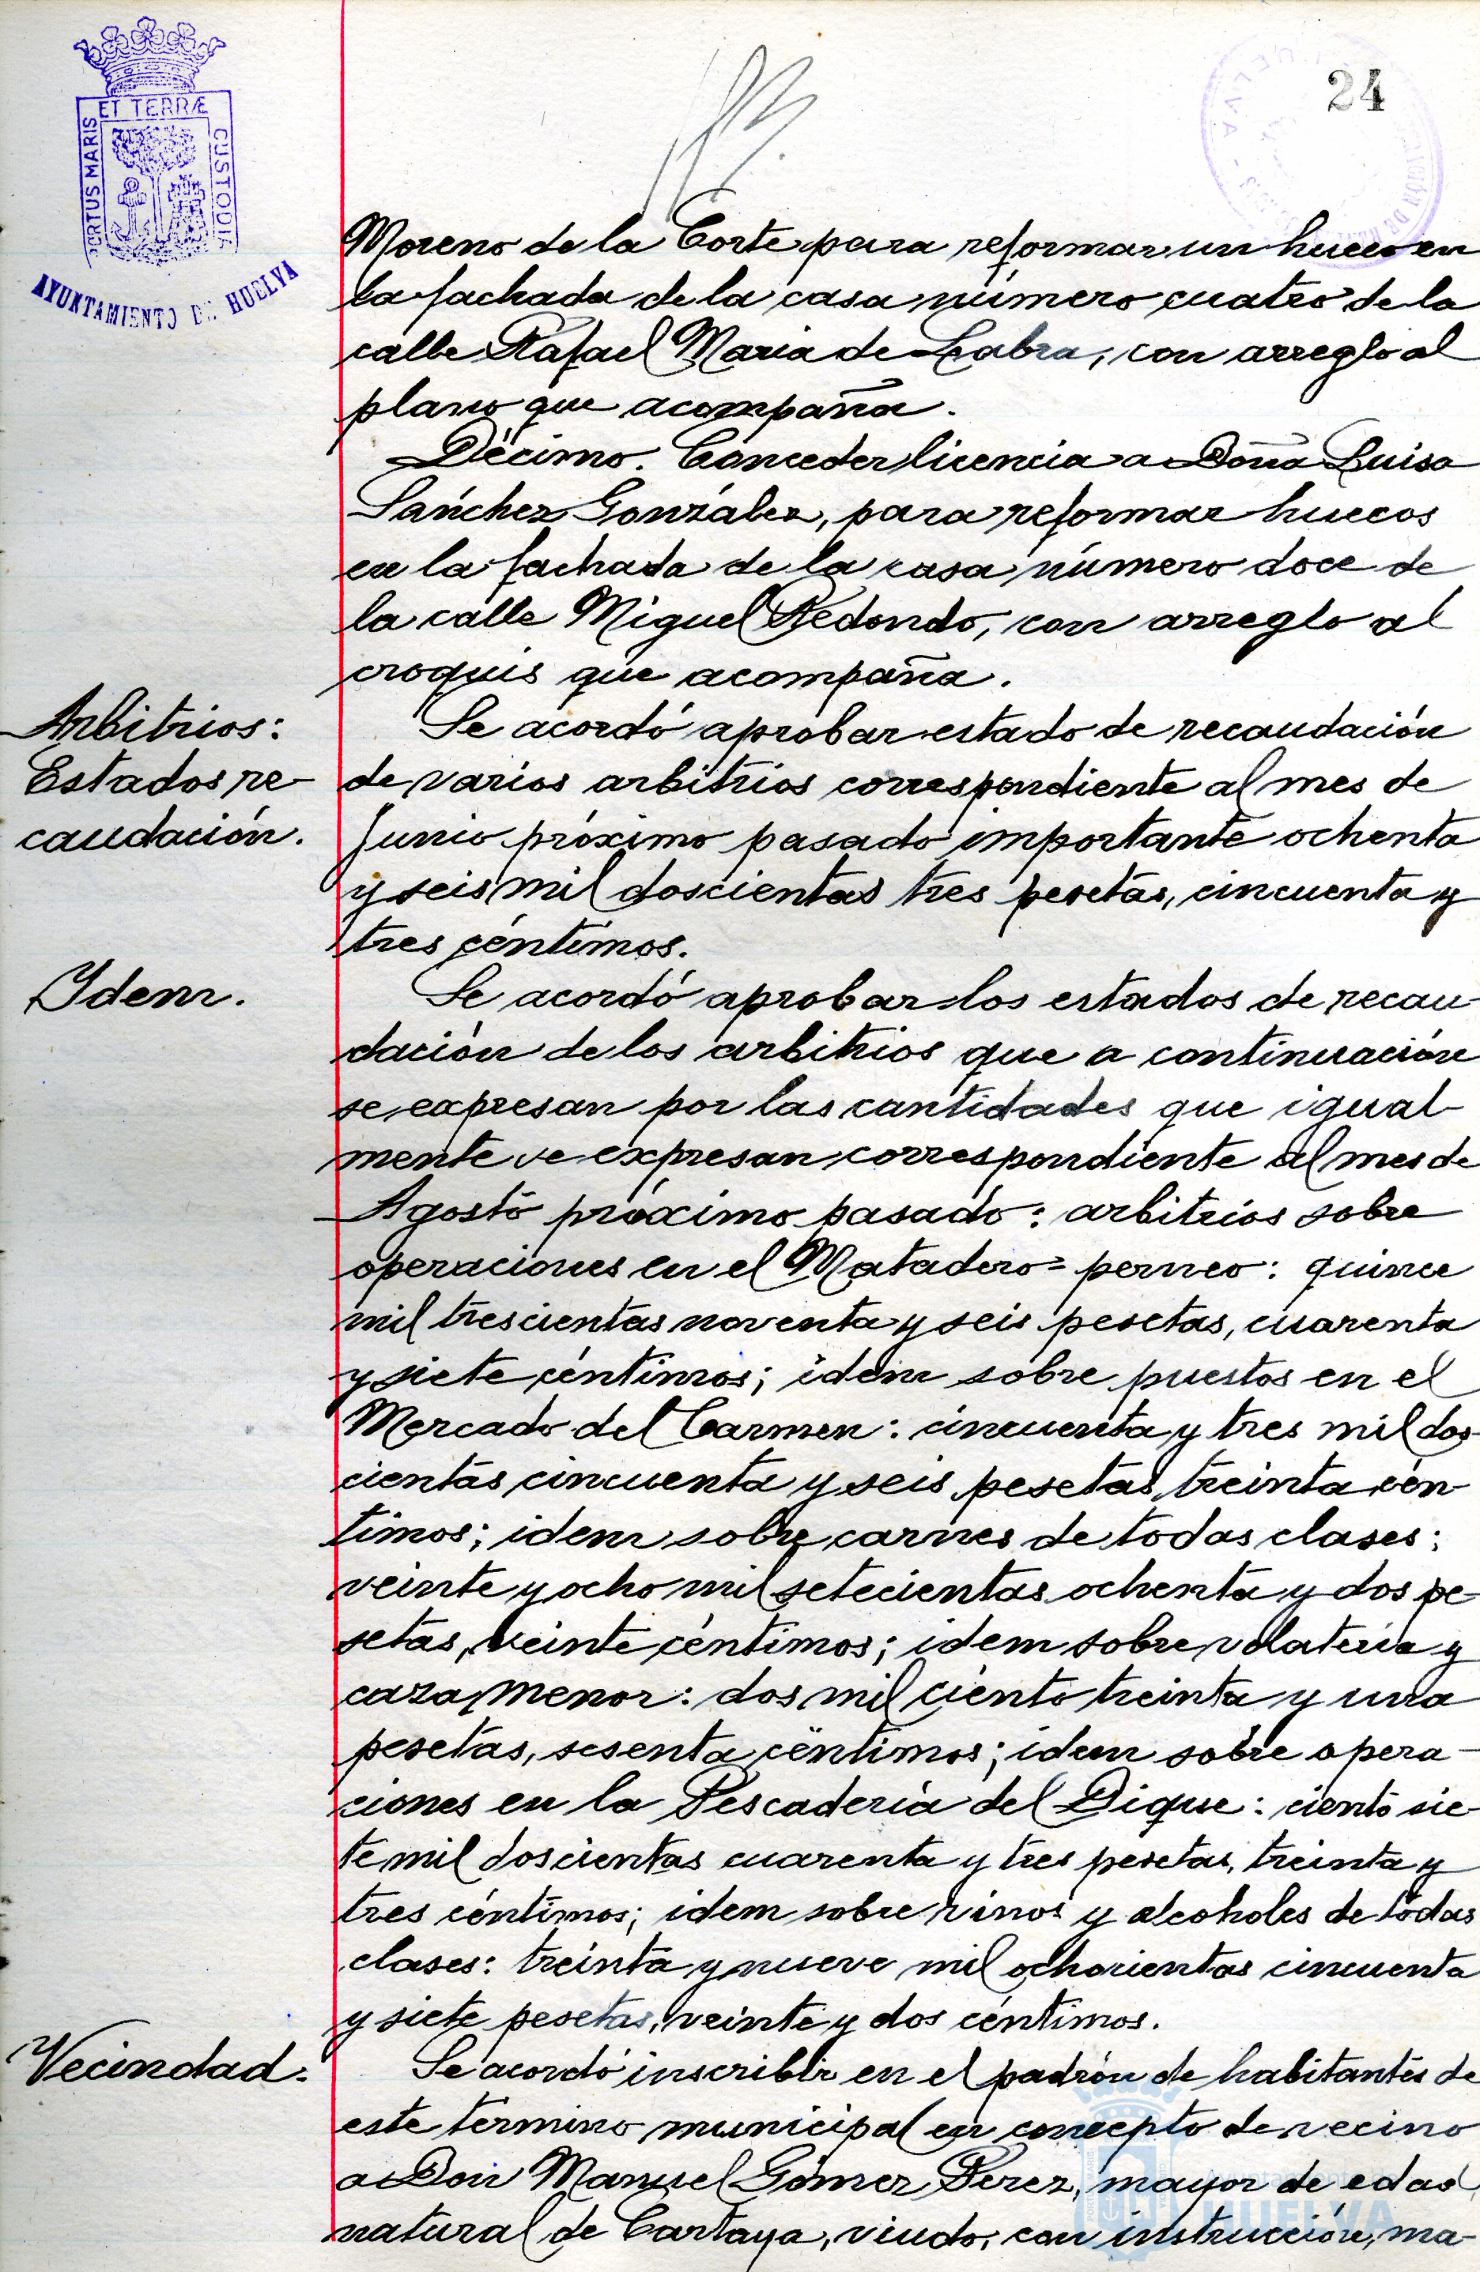 ET TERRÆ
PORTUS MARIS
CUSTODIA
AYUNTAMIENTO DE HUELVA
24
Moreno de la Corte para reformar un hueco en
la fachada de la casa número cuatro de la
calle Rafael Maria de Labra, con arreglo al
plano que acompaña.
Décimo. Conceder licencia a Doña Luisa
Sánchez González, para reformar huecos
en la fachada de la casa número doce de
la calle Miguel Redondo, con arreglo al
croquis que acompaña.
Arbitrios:
Estados re-
caudación.
Se acordó aprobar estado de recaudación
de varios arbitrios correspondiente al mes de
Junio próximo pasado importante ochenta
y seis mil doscientas tres pesetas, cincuenta y
tres céntimos.
Idem.
Se acordó aprobar los estados de recau-
dación de los arbitrios que a continuación
se expresan por las cantidades que igual-
mente se expresan correspondiente al mes de
Agosto próximo pasado: arbitrios sobre
operaciones en el Matadero = perneo: quince
mil trescientas noventa y seis pesetas, cuarenta
y siete céntimos; idem sobre puestos en el
Mercado del Carmen: cincuenta y tres mil dos-
cientas cincuenta y seis pesetas, treinta cén-
timos; idem sobre carnes de todas clases:
veinte y ocho mil setecientas ochenta y dos pe-
setas, veinte céntimos; idem sobre volatería y
caza menor: dos mil ciento treinta y una
pesetas, sesenta céntimos; idem sobre opera-
ciones en la Pescadería del Dique: ciento sie-
te mil doscientas cuarenta y tres pesetas, treinta y
tres céntimos; idem sobre vinos y alcoholes de todas
clases: treinta y nueve mil ochocientas cincuenta
y siete pesetas, veinte y dos céntimos.
Vecindad.
Se acordó inscribir en el padrón de habitantes de
este término municipal en concepto de vecino
a Don Manuel Gómez Pérez, mayor de edad,
natural de Cartaya, viudo, con instrucción, ma-
HUELVA